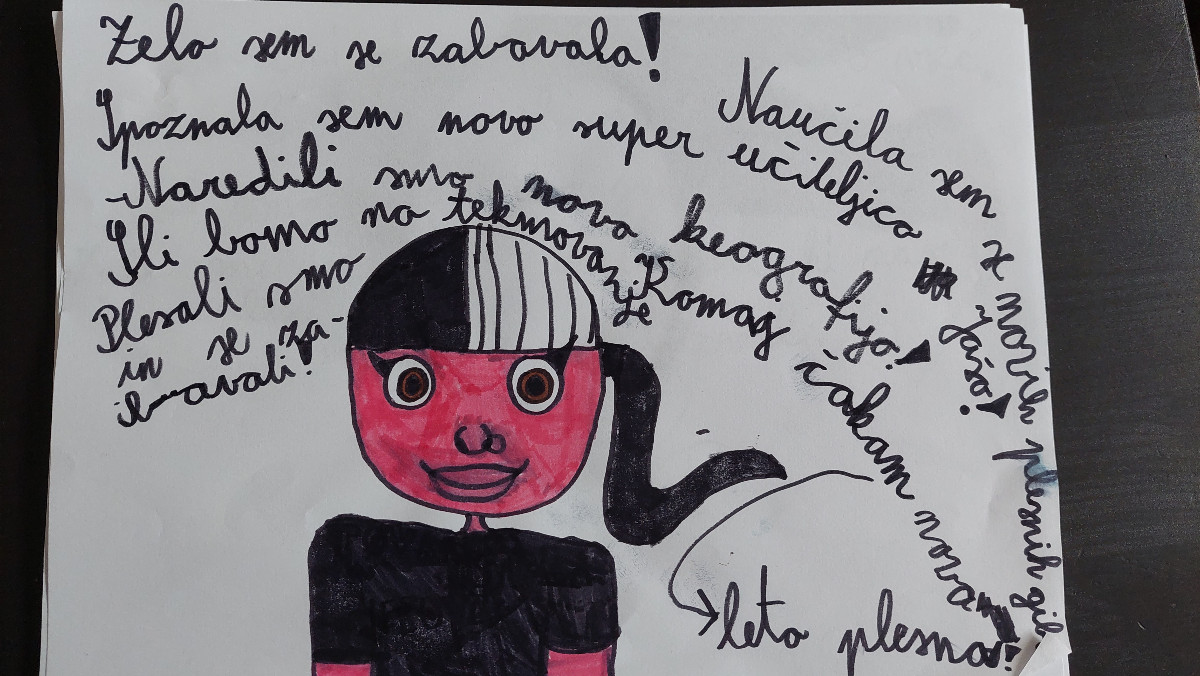 Zelo sem se zabavala!
Spoznala sem novo super učiteljico Jašo!
Naučila sem se novih plesnih gib
Naredili smo novo keografijo!
Šli bomo na tekmovanje
Komaj čakam nova leta plesna!
Plesali smo
in se za-
bavali!